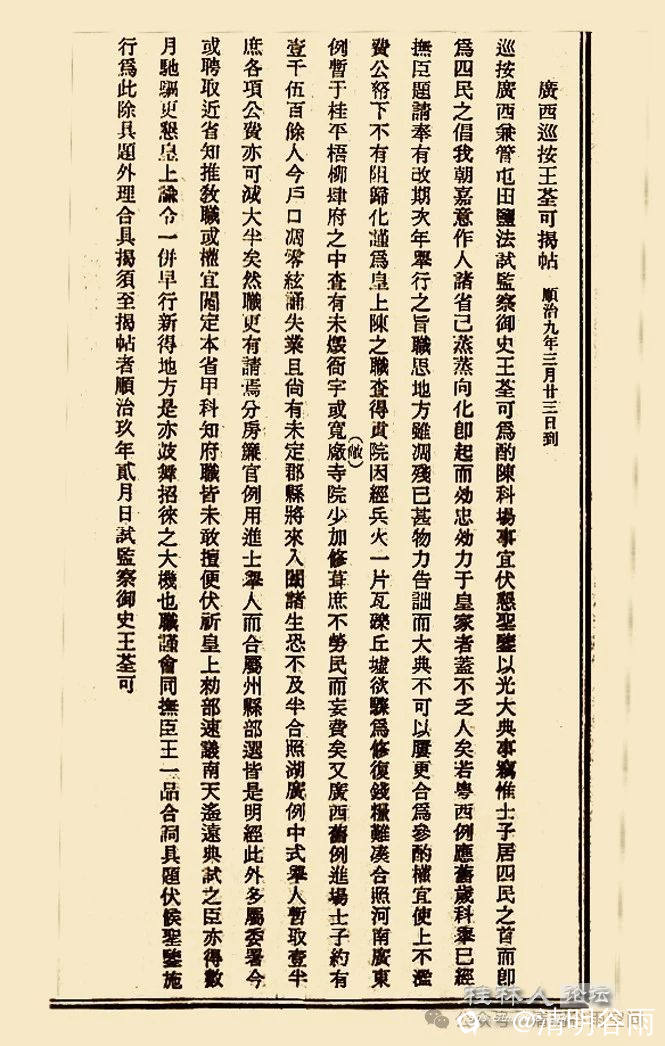 廣西巡按王荃可揭帖　順治九年三月廿三日到
巡按廣西兼管屯田鹽法試監察御史王荃可爲酌陳科場事宜伏懇聖鑒以光大典事竊惟士子居四民之首而卽
爲四民之倡我朝嘉意作人諸省已蒸蒸向化卽起而効忠効力于皇家者蓋不乏人矣若粵西例應舊歲科舉已經
撫臣題請奉有改期次年舉行之旨職思地方雖凋殘已甚物力告詘而大典不可以屢更合爲參酌權宜使上不濫
費公帑下不有阻歸化謹爲皇上陳之職查得貢院因經兵火一片瓦礫丘墟欲驟爲修復錢糧難湊合照河南廣東
例暫于桂平梧柳肆府之中查有未燬衙宇或寬廠(敞)寺院少加修葺庶不勞民而妄費矣又廣西舊例進場士子約有
壹千伍百餘人今戶口凋零絃誦失業且尙有未定郡縣將來入闈諸生恐不及半合照湖廣例中式舉人暫取壹半
庶各項公費亦可減大半矣然職更有請焉分房簾官例用進士舉人而合屬州縣部選皆是明經此外多屬委署今
或聘取近省知推敎職或權宜閱定本省甲科知府職皆未敢擅便伏祈皇上勑部速議南天遙遠典試之臣亦得數
月馳驅更懇皇上諭令一併早行新得地方是亦鼓舞招徠之大機也職謹會同撫臣王一品合詞具題伏候聖鑒施
行爲此除具題外理合具揭須至揭帖者順治玖年貳月日試監察御史王荃可
桂林人 论坛
公众号
@清明谷雨
空间